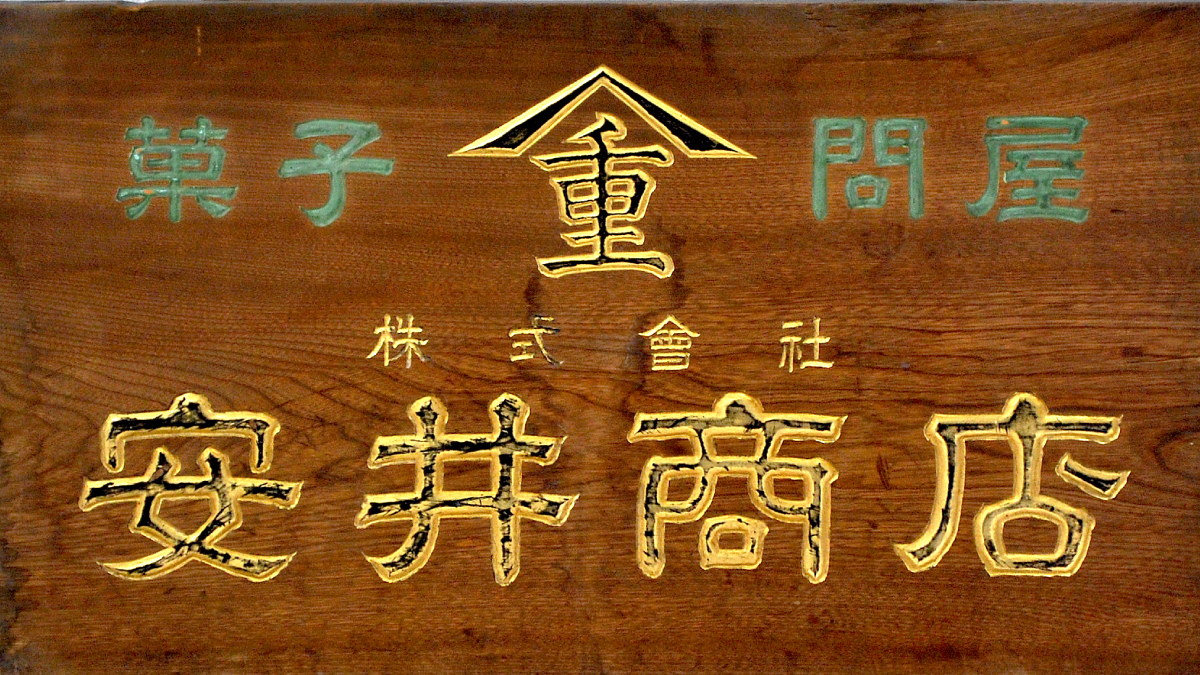 菓子 重 問屋
株式會社
安井商店